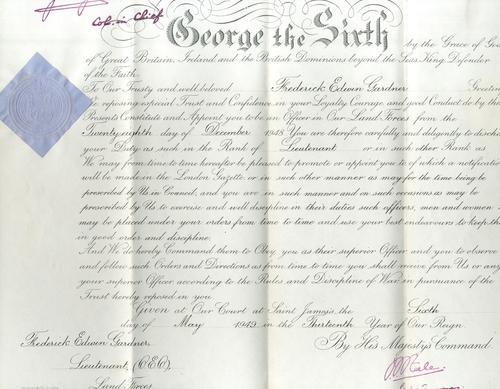 Col. in Chief
George the Sixth by the Grace of God
of Great Britain, Ireland and the British Dominions beyond the Seas King, Defender
of the Faith.
To Our Trusty and well beloved Frederick Edwin Gardner Greeting
We reposing special Trust and Confidence in your Loyalty Courage and good Conduct do by these
Presents Constitute and Appoint you to be an Officer in Our Land Forces from the
Twenty eighth day of December 1948 You are therefore carefully and diligently to discharge
your Duty as such in the Rank of Lieutenant or in such other Rank as
We may from time to time hereafter be pleased to promote or appoint you to of which a notification
will be made in the London Gazette or in such other manner as may for the time being be
prescribed by Us in Council, and you are in such manner and on such occasions as may be
prescribed by Us to exercise and well discipline in their duties such officers, men and women as
may be placed under your orders from time to time and use your best endeavours to keep them
in good order and discipline.
And We do hereby Command them to Obey you as their superior Officer and you to observe
and follow such Orders and Directions as from time to time you shall receive from Us or any
your superior Officer according to the Rules and Discipline of War in pursuance of the
Trust hereby reposed in you.
Given at Our Court at Saint James's, the Sixth
day of May 1949 in the Thirteenth Year of Our Reign
By His Majesty's Command.
Frederick Edwin Gardner
Lieutenant, (CEC),
Land Forces